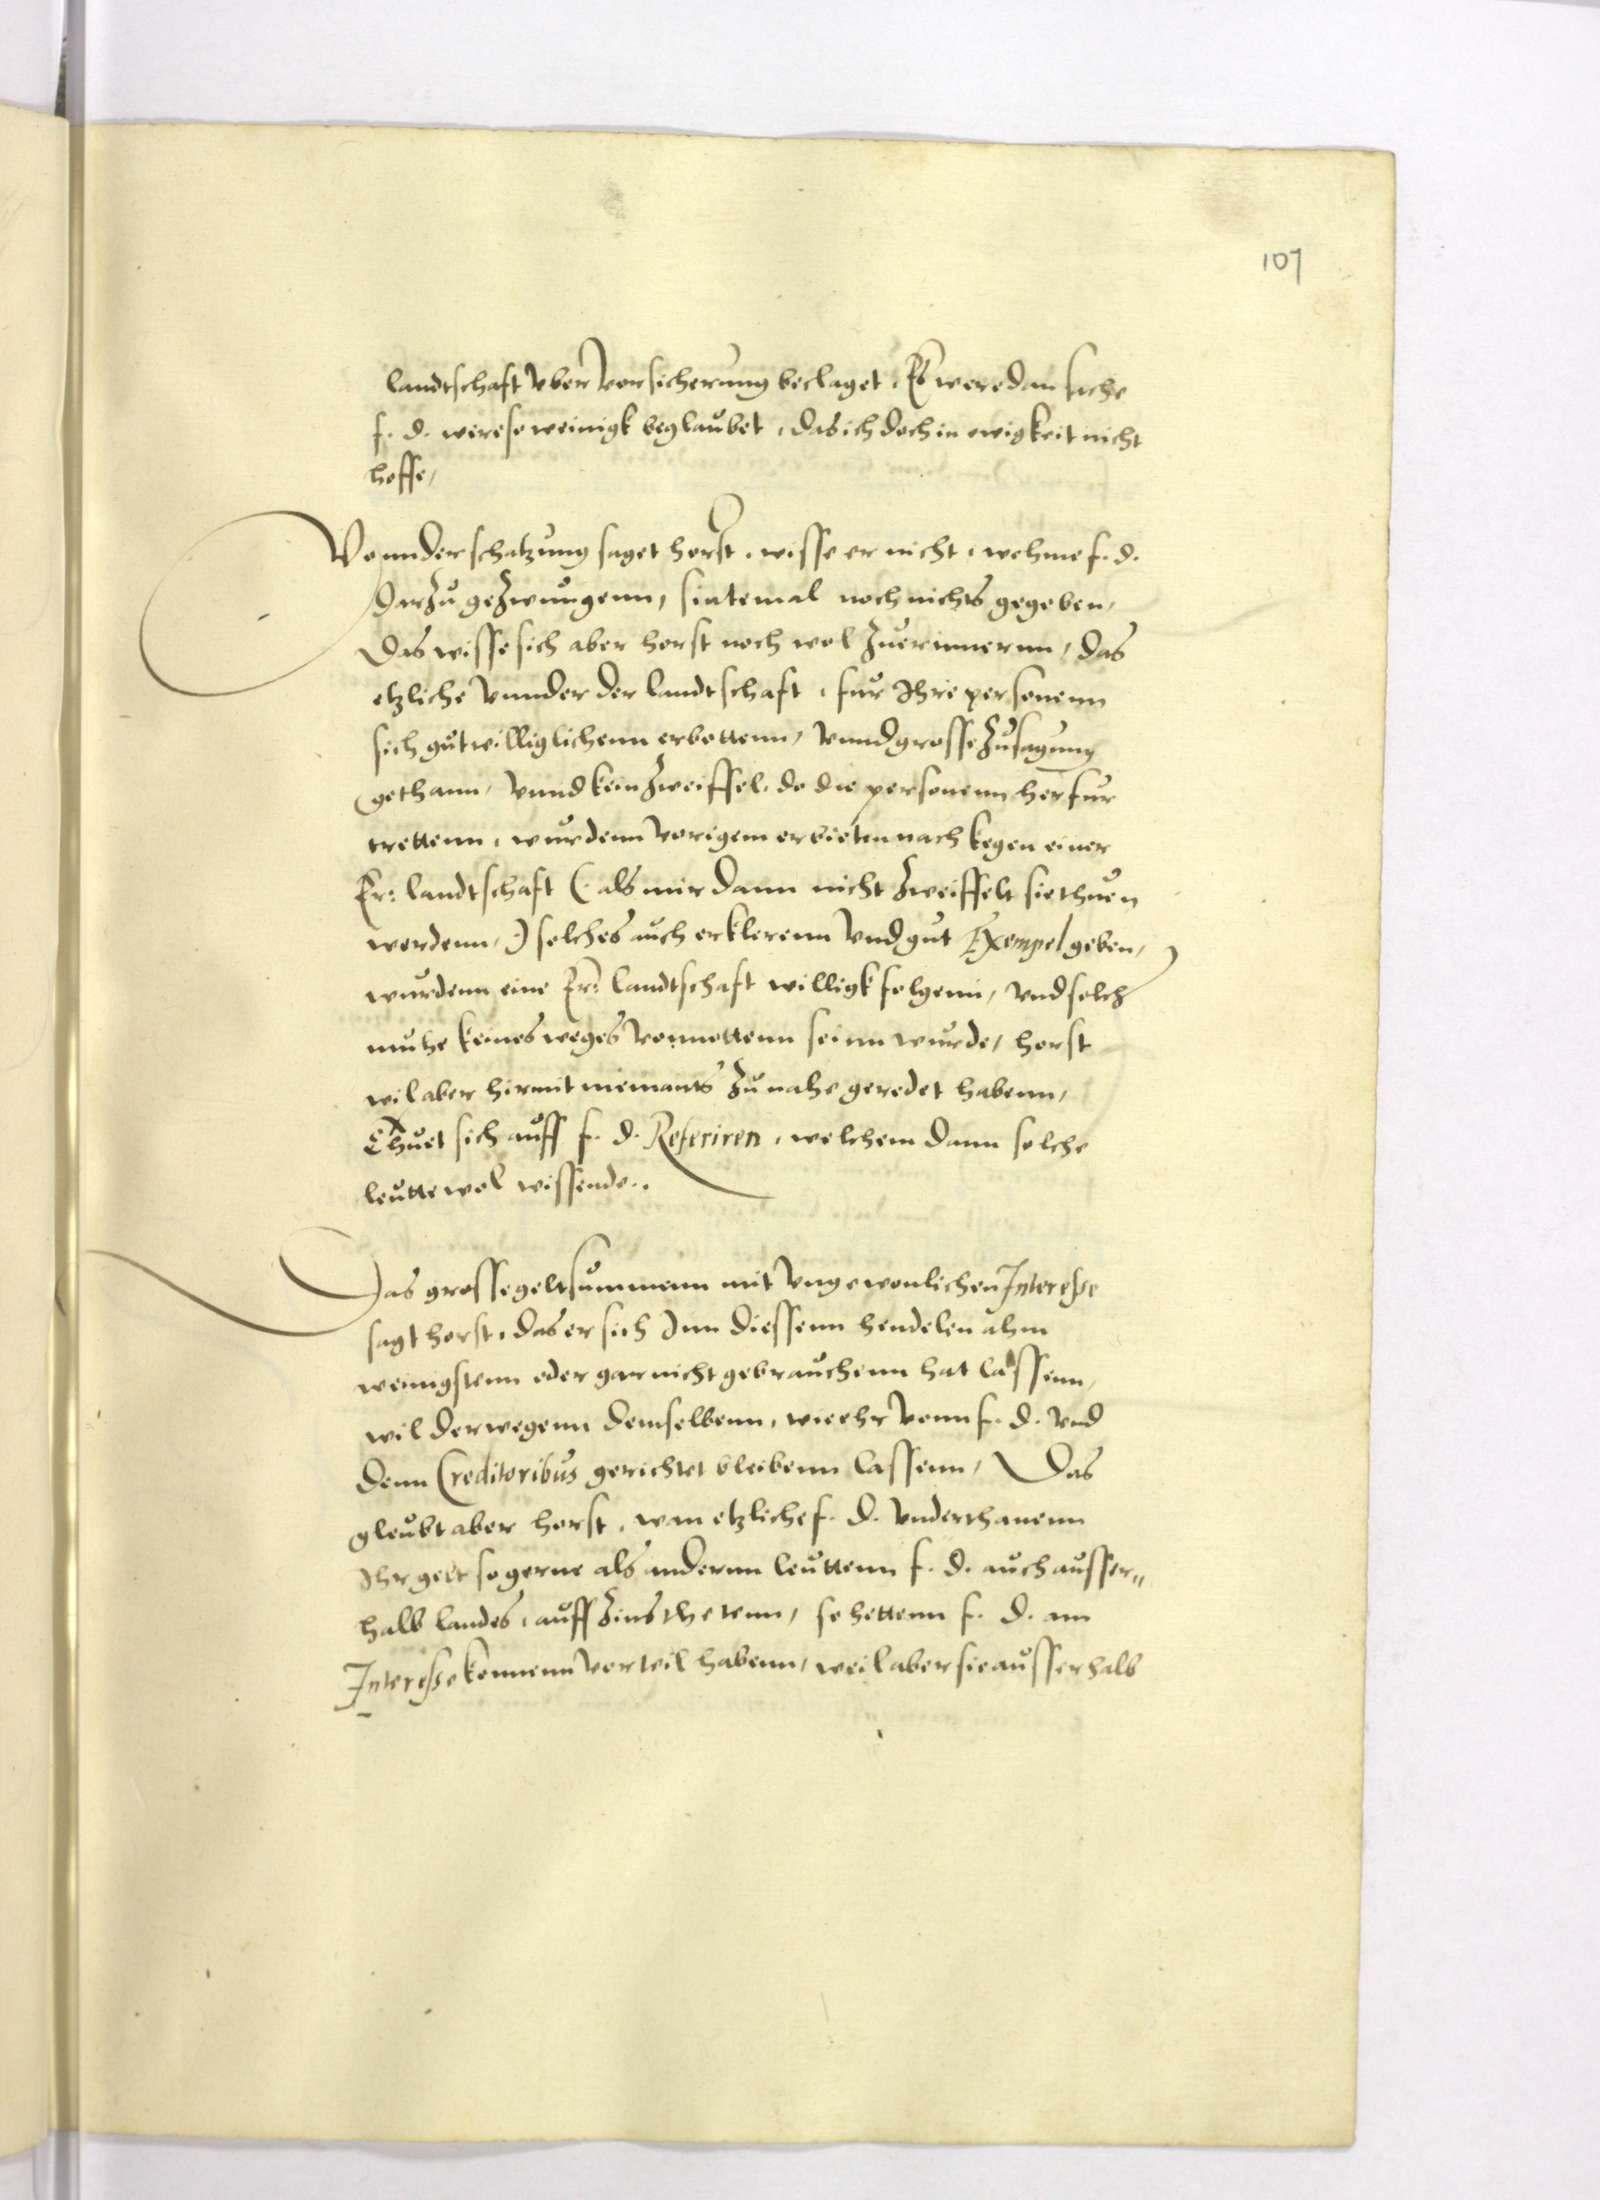 107
landtschaft vber vorsicherung beclaget. Es were dan sache
f. d. were so weinigk beglaubet, das ich doch in ewigkeit nicht
hoffe,
Vonn der schatzung saget Horst, wisse er nicht, wehme f. d.
darzu gezwungenn, sintemal noch nichts gegeben,
Das wisse sich aber Horst noch wol zuerinnernn, das
etzliche vnnder der landtschaft, fur Ihre personenn
sich gutwilliglichenn erbottenn, vnnd grosse zusagung
gethann, vnnd kein zweiffel, do die personenn herfur
trettenn, wurdenn vorigem erbieten nach kegen einer
Er: landtschaft (: als mir dann nicht zweiffelt sie thuen
werdenn, :) solches auch erklerenn vnd gut Exempel geben,
wurdenn eine Er: landtschaft willigk folgenn, vnd solch
muhe keines weges vonnottenn seinn wurde, Horst
wil aber hirmit niemants zu nahe geredet habenn,
Thuet sich auff f. d. Referiren, welchem dann solche
leutte wol wissende..
Das grosse geltsummenn mit vngewonlichen Interesse
sagt Horst, das er sich Inn diessenn hendelen ahm
wenigstenn oder gar nicht gebrauchenn hat lassenn,
wil derwegenn demselbenn, wie ehr vonn f. d. vnd
denn Creditoribus gerichtet bleibenn lassenn, Das
gleubt aber Horst, wan etzliche f. d. vnderthanenn
Ihr gelt so gerne als andernn leuttenn f. d. auch ausser„
halb landes, auff zins thetenn, so hettenn f. d. am
Interesse konnenn vorteil habenn, weil aber sie ausserhalb